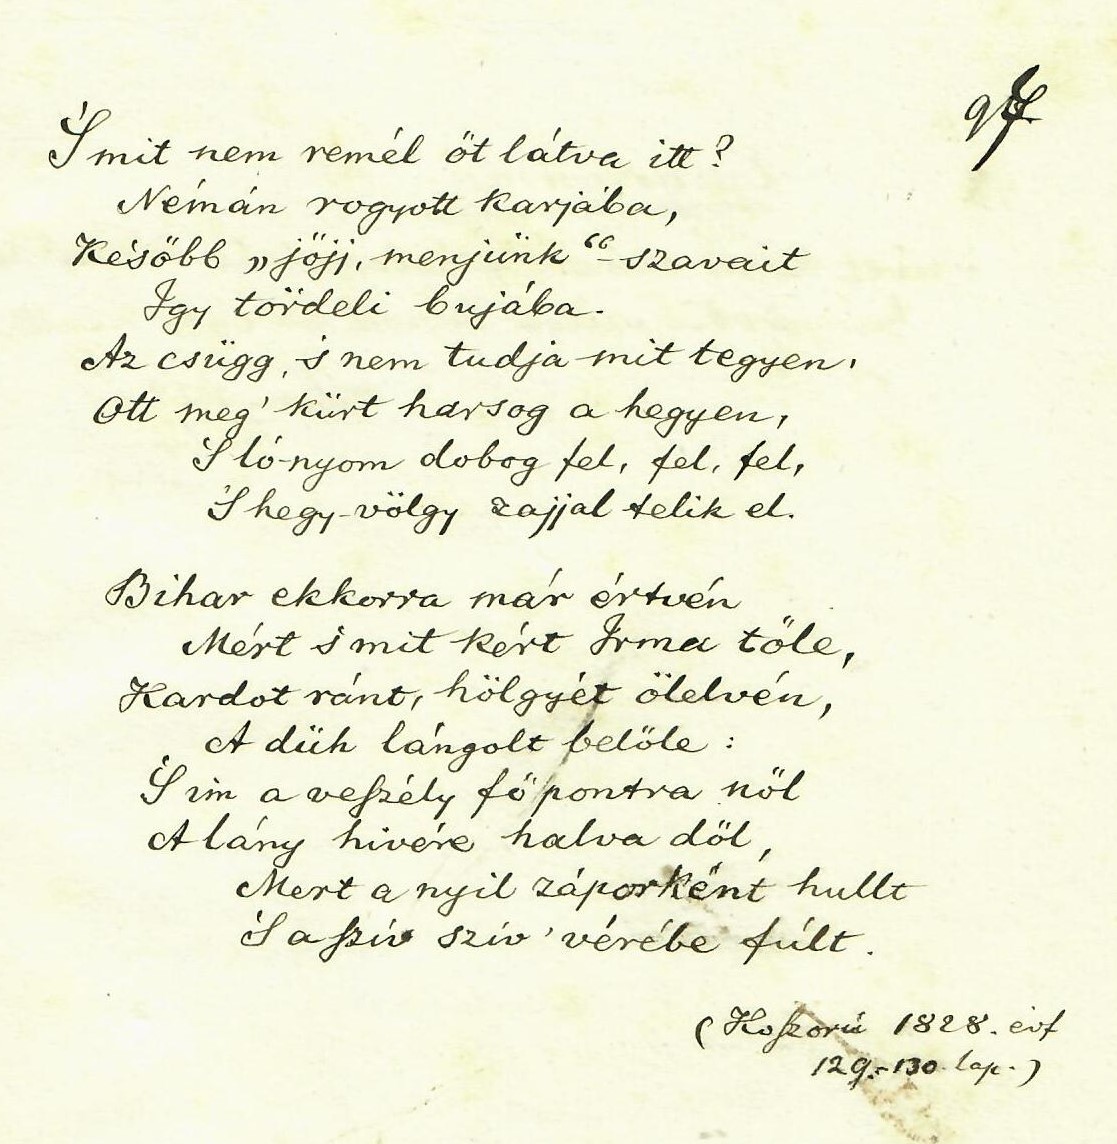 'S mit nem remél őt látva itt?
Némán rogyott karjába,
Később „jöjj, menjünk“-szavait
Igy tördeli bujába.
Az csügg, 's nem tudja mit tegyen,
Ott meg' kürt harsog a hegyen,
'S ló-nyom dobog fel, fel, fel,
'S hegy-völgy zajjal telik el.
Bihar ekkorra már értvén
Mért 's mit kért Irma tőle,
Kardot ránt, hölgyét ölelvén,
A düh lángolt belőle:
'S im a veszély főpontra nől
A lány hivére halva dől,
Mert a nyil záporként hullt
'S a sziv sziv' vérébe fúlt.
(Koszorú 1828. évf
129.-130 lap.)